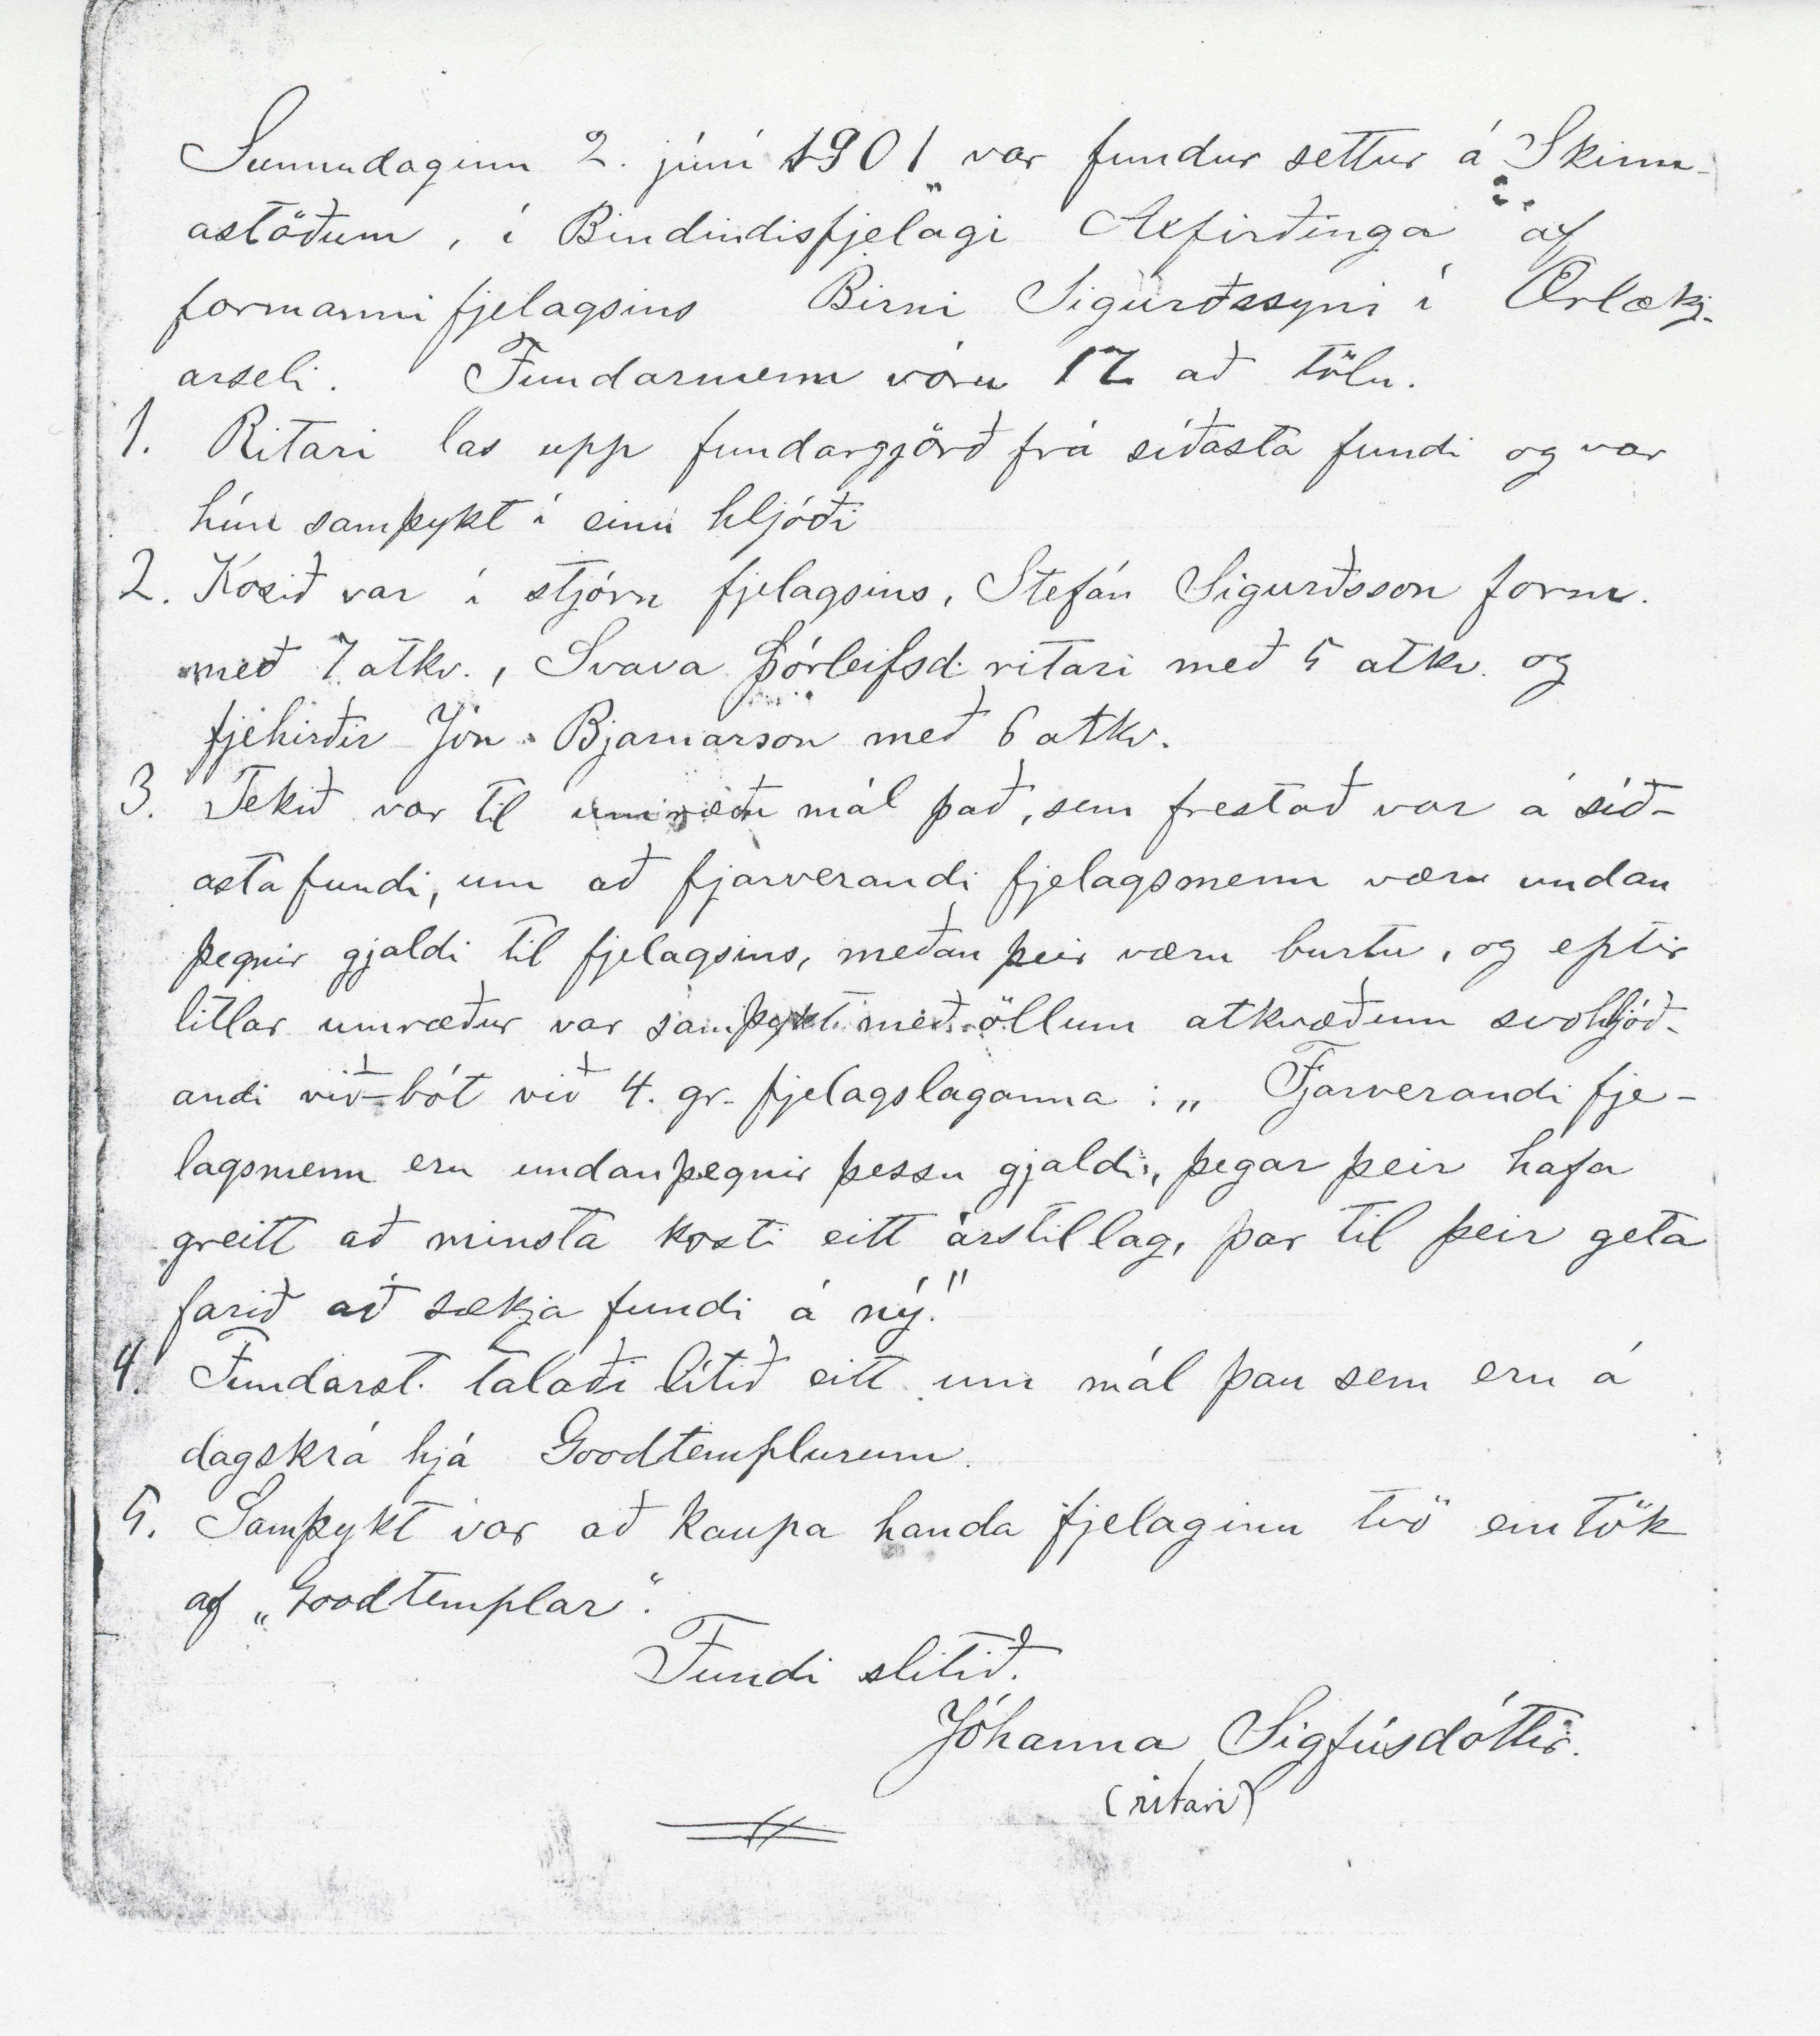 Sunnudaginn 2. júní 1901 var fundur settur á Skinn-
astöðum, í Bindindisfjelagi Axfirðinga af
formanni fjelagsins Birni Sigurðssyni í Ærlækj-
arseli. Fundarmenn vóru 17 að tölu.
1. Ritari las upp fundargjörð frá síðasta fundi og var
hún samþykt í einu hljóði
2. Kosið var í stjórn fjelagsins, Stefán Sigurðsson form.
með 7 atkv., Svava Þórleifsd. ritari með 5 atkv. og
fjehirðir Jón Bjarnarson með 6 atkv.
3. Tekið var til umræðu mál það, sem frestað var á síð-
asta fundi, um að fjarverandi fjelagsmenn væru undan
þegnir gjaldi til fjelagsins, meðan þeir væru burtu, og eptir
litlar umræður var samþykt með öllum atkvæðum svohljóð-
andi við-bót við 4. gr. fjelagslaganna: „Fjarverandi fje-
lagsmenn eru undanþegnir þessu gjaldi, þegar þeir hafa
greitt að minsta kosti eitt árstillag, þar til þeir geta
farið að sækja fundi á ný."
4. Fundarst. talaði lítið eitt um mál þau sem eru á
dagskrá hjá Goodtemplurum.
5. Samþykt var að kaupa handa fjelaginu tvö eintök
af „Goodtemplar".
Fundi slitið.
Jóhanna Sigfúsdóttir.
(ritari)